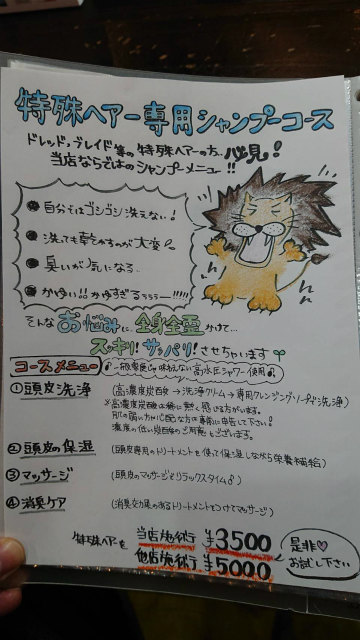 特殊ヘアー専用シャンプーコース
ドレッド、ブレイド等の特殊ヘアーの方、必見!
当店ならではのシャンプーメニュー!!
自分ではゴシゴシ洗えない!
洗っても乾かすのが大変
臭いが気になる
かゆい!!かゆすぎるぅぅぅー!!!!!
そんなお悩みに全身全霊かけて…
スッキリ!サッパリ!させちゃいます
コースメニュー
一般家庭じゃ味わえない高水圧シャワー使用♪
①頭皮洗浄
(高濃度炭酸→洗浄クリーム→専用クレンジングソープで洗浄)
※高濃度炭酸は稀に熱く感じる方がいます。
肌の弱い方や心配な方は事前に申告して下さい!
濃度の低い炭酸のご用意もございます。
②頭皮の保湿
(頭皮専用のトリートメントを使って保湿しながら栄養補給)
③マッサージ
(頭皮のマッサージでリラックスタイム♪)
④消臭ケア
(消臭効果のあるトリートメントをつけてマッサージ)
特殊ヘアーを
当店施術 ¥3500
他店施術 ¥5000
是非♡
お試し下さい